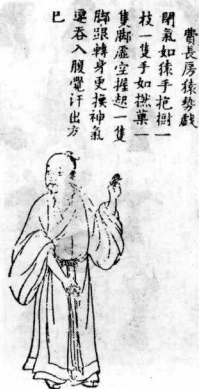 費長房猿勢戲
閉氣如猿手抱樹一
枝一隻手如撚菓一
隻脚虛空握起一隻
脚跟轉身更換神氣
運吞入腹覺汗出方
已